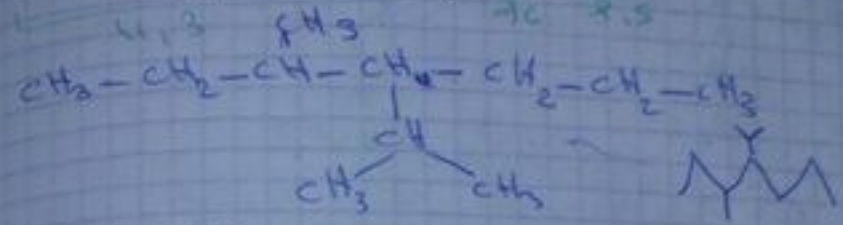 CH3
CH3 – CH2 – CH – CH – CH2 – CH2 – CH3
CH
CH3 CH3